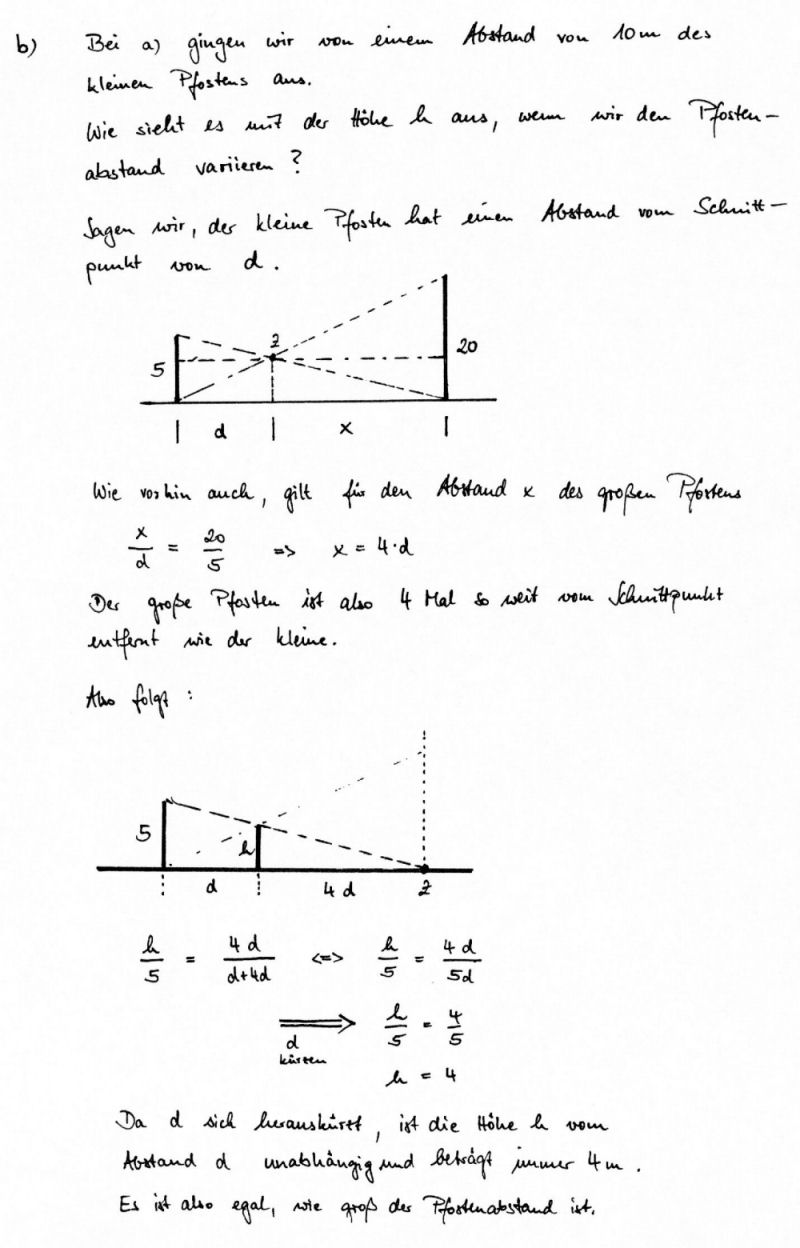 b) Bei a) gingen wir von einem Abstand von 10m des
kleinen Pfostens aus.
Wie sieht es mit der Höhe h aus, wenn wir den Pfosten-
abstand variieren?
Sagen wir, der kleine Pfosten hat einen Abstand vom Schnitt-
punkt von d.
Z
5
20
d
x
Wie vorhin auch, gilt für den Abstand x des großen Pfostens
x/d = 20/5 => x = 4·d
Der große Pfosten ist also 4 Mal so weit vom Schnittpunkt
entfernt wie der kleine.
Also folgt:
5
h
d
4d
Z
h/5 = 4d/(d+4d) <=> h/5 = 4d/5d
=> d kürzen h/5 = 4/5
h = 4
Da d sich herauskürzt, ist die Höhe h vom
Abstand d unabhängig und beträgt immer 4m.
Es ist also egal, wie groß der Pfostenabstand ist.